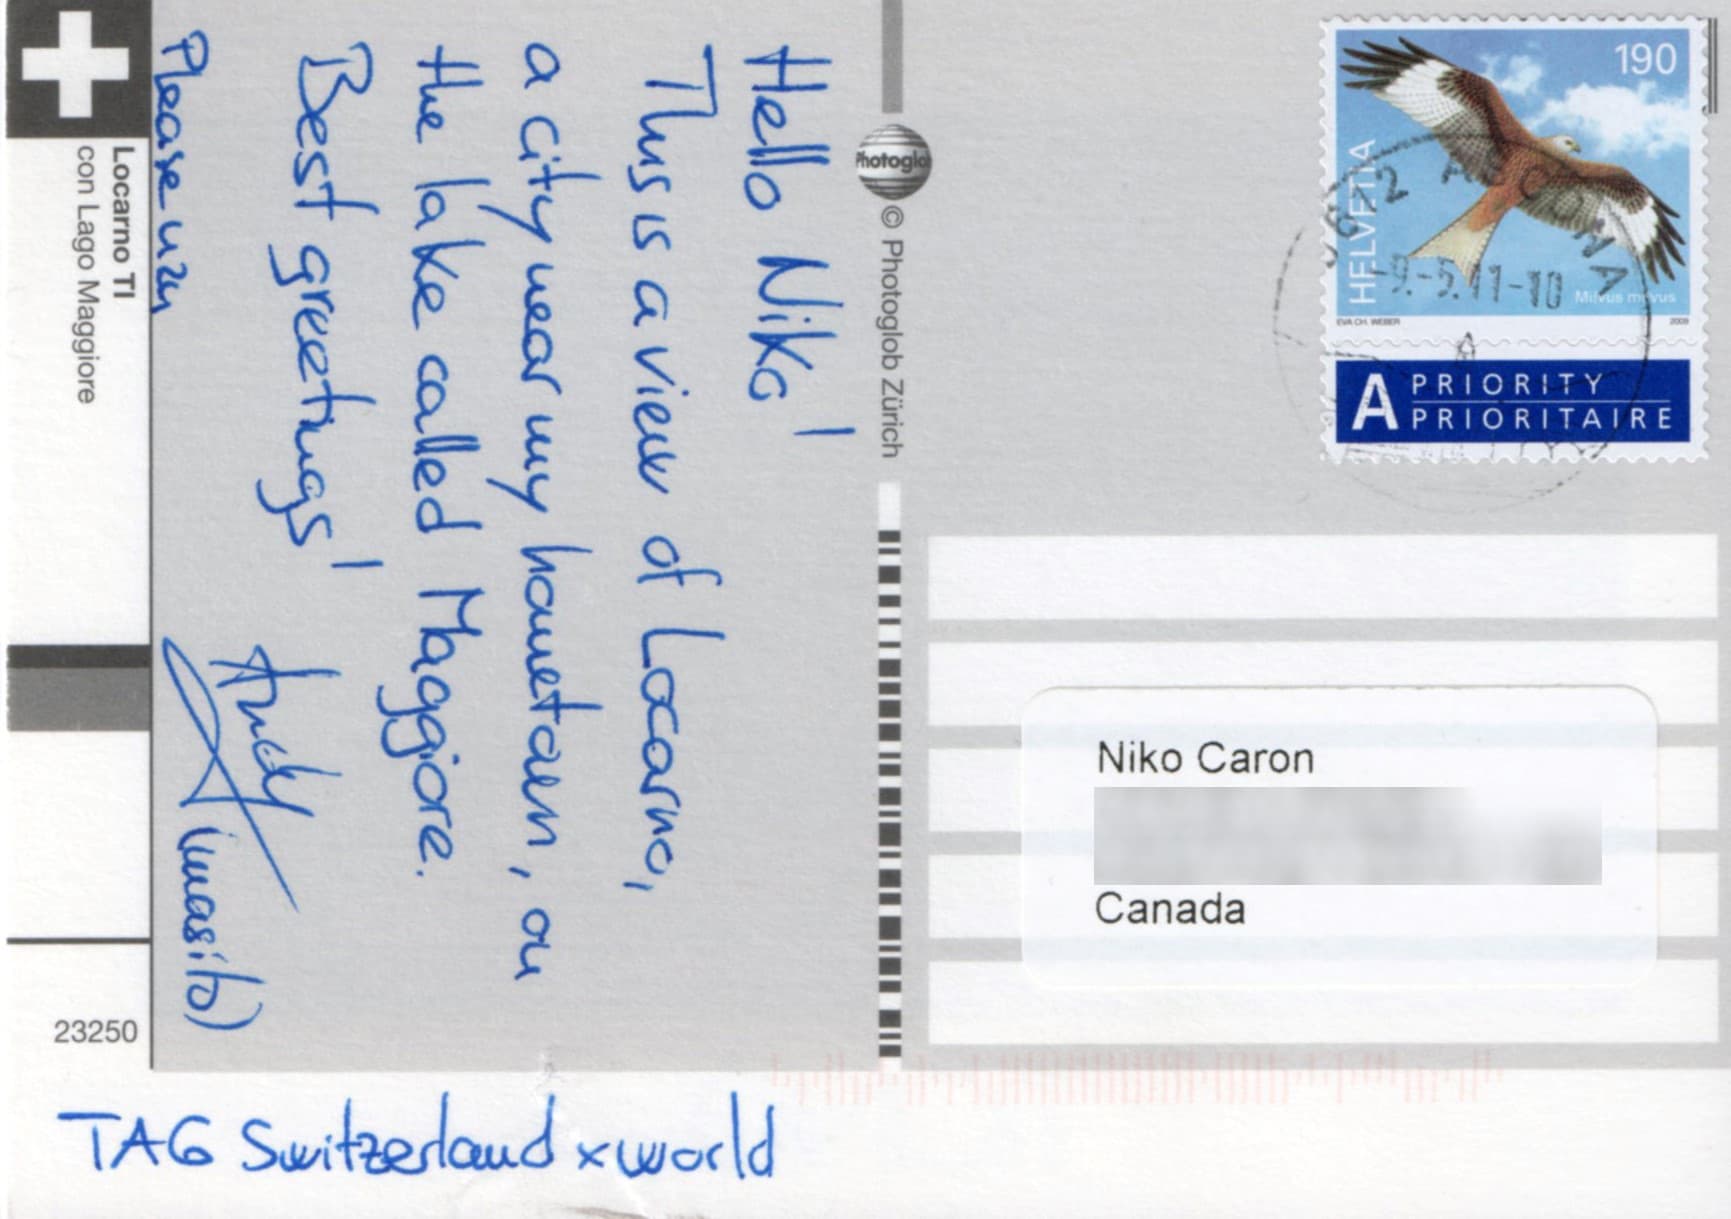 Hello Niko!
This is a view of Locarno,
a city near my hometown, on
the lake called Maggiore.
Best greetings!
(imasito)
Please
TAG Switzerland x world
Locarno TI
con Lago Maggiore
23250
Photoglob
© Photoglob Zürich
190
HELVETIA
Milvus milvus
EVA CH. WEBER
2009
-9.-5.11-10
A PRIORITY
PRIORITAIRE
Niko Caron
Canada